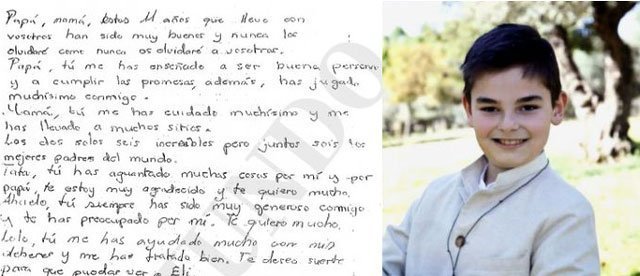 Papá, mamá, estos 11 años que llevo con
vosotros han sido muy buenos y nunca los
olvidaré como nunca os olvidaré a vosotros.
Papá, tú me has enseñado a ser buena persona
y a cumplir las promesas, además, has jugado
muchísimo conmigo.
Mamá, tú me has cuidado muchísimo y me
has llevado a muchos sitios.
Los dos solos sois increíbles pero juntos sois los
mejores padres del mundo.
Tata, tú has aguantado muchas cosas por mí y por
papá, te estoy muy agradecido y te quiero mucho.
Abuelo, tú siempre has sido muy generoso conmigo
y te has preocupado por mí. Te quiero mucho.
Lolo, tú me has ayudado mucho con mis
deberes y me has tratado bien. Te deseo suerte
para que puedas ver a Eli